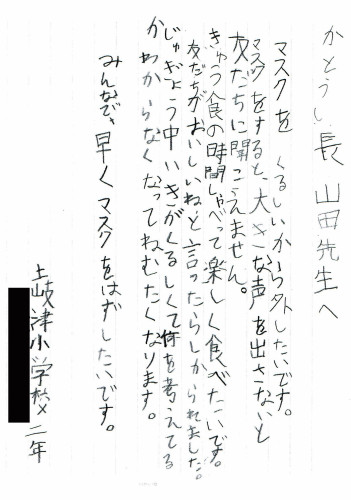 かとうい長 山田先生へ
マスクを くるしいから外したいです。
マスクをすると、大きな声を出さないと
友だちに聞こえません。
きゅう食の時間しゃべって楽しく食べたいです。
友だちがおいしいねと言ったらしかられました。
じゅぎょう中いきがくるしくて何を考えてる
かわからなくなってねむたくなります。
みんなで、早くマスクをはずしたいです。
土岐津小学校 二年